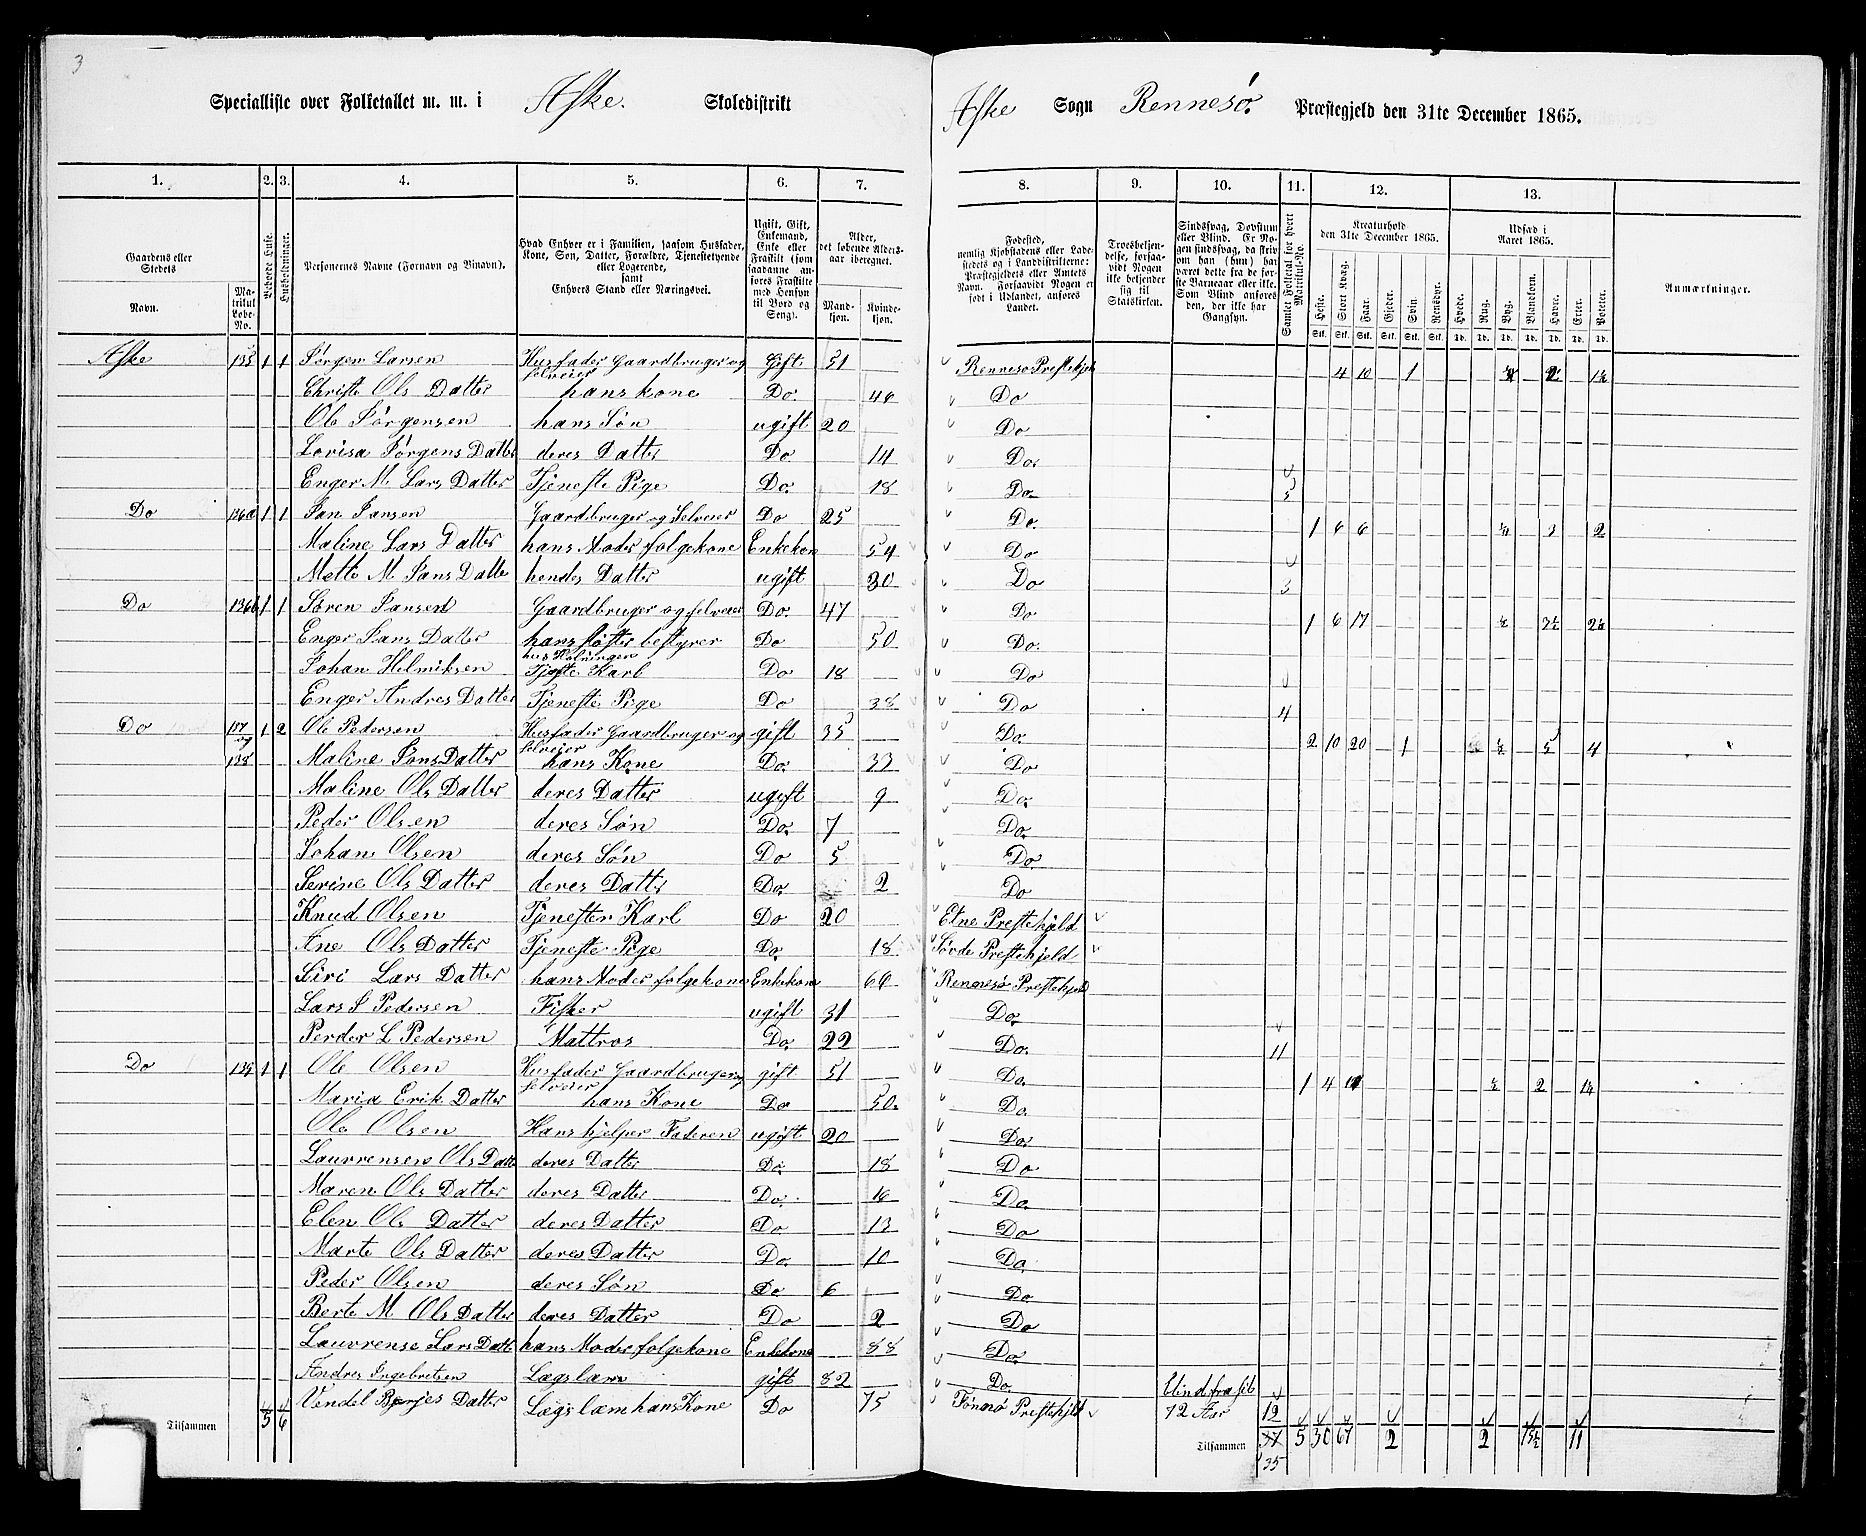 3
Specialliste over Folketallet m. m. i Aske. Skoledistrikt Aske Sogn Rennesø. Præstegjeld den 31te December 1865.
1. 2. 3. 4. 5. 6. 7. 8. 9. 10. 11. 12. 13.
Gaardens eller Stedets
Navn.
Matrikul Løbe-No.
Beboede Huse.
Husholdninger.
Personernes Navne (Fornavn og Binavn).
Hvad Enhver er i Familien, saasom Husfader, Kone, Søn, Datter, Forældre, Tjenestetyende eller Logerende, samt Enhvers Stand eller Næringsvei.
Ugift, Gift, Enkemand, Enke eller Fraskilt (som saadanne anføres Fraskilte med Hensyn til Bord og Seng).
Alder, det løbende Aldersaar iberegnet.
Mandkjøn. Kvindekjøn.
Fødested, nemlig Kjøbstadens eller Ladestedets og i Landdistrikterne: Præstegjeldets eller Amtets Navn. Forsaavidt Nogen er født i Udlandet, anføres Landet.
Troesbekjendelse, forsaavidt Nogen ikke bekjender sig til Statskirken.
Sindssvag, Døvstum eller Blind. Er Nogen sindssvag, da skrives om han (hun) har været dette fra de første Barneaar eller ikke. Som Blind anføres den, der ikke har Gangsyn.
Samlet Folketal for hvert Matrikul-No.
Kreaturhold den 31te December 1865.
Heste. Stort Kvæg. Faar. Gjeder. Svin. Rensdyr.
Udsæd i Aaret 1865.
Hvede. Rug. Byg. Blandkorn. Havre. Erter. Poteter.
Anmærkninger.
Aske 135 1 1 Jørgen Larsen Husfader Gaardbruger og selveier Gift 51 Rennesø Prestekjel 4 10 1 1½
Christe Ols Datter hans kone Do. 46 Do
Ole Jørgensen hans Søn ugift 20 Do
Lovisa Jørgens Datter deres Datter Do 14 Do.
Enger M Lars Datter Tjeneste Pige Do. 18 Do. 5
Do 136a 1 1 Jan Jansen Gaardbruger og Selveier Do 25 Do. 1 6 6 ½ 3 2
Maline Lars Datter hans Moder folgekone Enkekon 54 Do
Mette M Jans Datte hendes Datter ugift 30 Do 3
Do 136b 1 1 Søren Jansen Gaardbruger og selveier Do. 47 Do 1 6 17 ½ 3½ 2½
Enger Jans Datter hans søster bestyrer hus Holningen Do 50 Do.
Johan Helmiksen Tjeste Karl Do 18 Do
Enger Andres Datter Tjeneste Pige Do 38 Do 4
Do 137 og 138 1 2 Ole Pedersen Husfader Gaardbruger og selveier gift 35 Do. 2 10 20 1 ½ 5 4
Maline Jans Datter hans Kone Do. 33 Do
Maline Ols Datter deres Datter ugift 9 Do.
Peder Olsen deres Søn Do. 7 Do.
Johan Olsen deres Søn Do 5 Do.
Serine Ols Datter deres Datter Do. 2 Do
Knud Olsen Tjenester Karl Do 20 Etne Prestekjeld
Ane Ols Datter Tjeneste Pige Do. 18 Søvde Prestekjeld
Siri Lars Datter hans Moder folgekone Enkekone 66 Rennesø Prestekjeld
Lars S Pedersen Fisker ugift 31 Do.
Perder L Pedersen Mattros Do. 22 Do. 11
Do 139 1 1 Ole Olsen Husfader Gaardbruger og selveier gift 51 Do. 1 4 ½ 2 1½
Maria Erik Datter hans Kone Do 50. Do.
Ole Olsen Hans hjelper Faderen ugift 20 Do.
Lauvrensen Ols Datte deres Datter Do. 18 Do
Maren Ols Datter deres Datter Do. 16 Do.
Elen Ole Datter deres Datter Do 13 Do
Marte Ols Datter deres Datter Do. 10 Do.
Peder Olsen deres Søn Do 6 Do
Berte M Ols Datter deres Datter Do 2 Do
Lauvrense Lars Datte hans Moder folgekone Enkekone 88 Do.
Andres Ingebretsen Lægslam gift 82 Do.
Vendel Børjes Datter Lægs læm hans Kone Do 75 Prestekjeld Blind fra sit 72 Aar 12
Tilsammen 5 6 Tilsammen 37 35 5 30 67 2 2 15½ 11